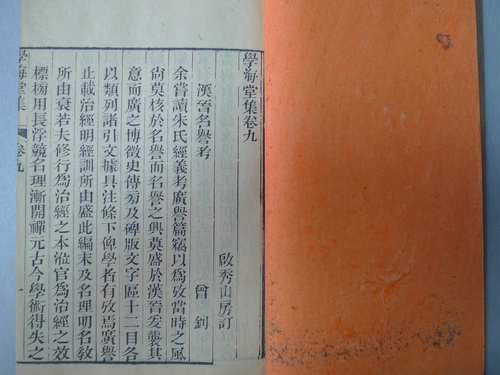 學海堂集卷九
啟秀山房訂
漢晉名譽考
曾釗
余嘗讀朱氏經義考廣譽篇竊以為攷當時之風
尚莫核於名譽而名譽之興莫盛於漢晉爰襲其
意而廣之博徵史傳旁及碑版文字區十二目各
以類列諸引文據具注條下俾學者有攷焉廣譽
止載治經明經訓所由盛此編末及名理明名教
所由衰若夫修行為治經之本涖官為治經之效
標榜用長浮競名理漸開禪元古今學術得失之
學海堂集
卷九
一